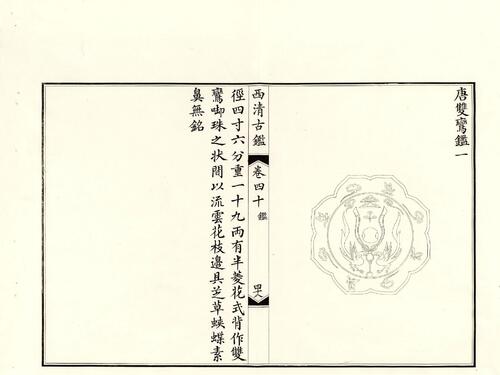 唐雙鸞鑑一
西清古鑑
卷四十
鑑
四六
徑四寸六分重一十九兩有半菱花式背作雙
鸞啣珠之狀間以流雲花枝邊具芝草蛺蝶素
鼻無銘